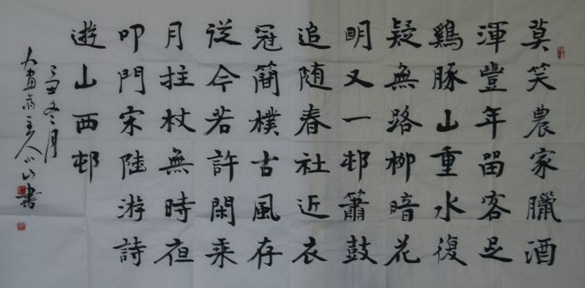 莫笑農家臘酒
渾豐年留客足
鷄豚山重水復
疑無路柳暗花
明又一邨簫鼓
追随春社近衣
冠簡樸古風存
從今若許閑乘
月拄杖無時夜
叩門宋陸游詩
遊山西邨
冬月
主人小山書